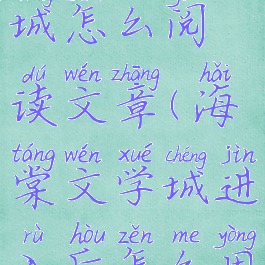 城怎么阅
dú wén zhāng hǎi
读文章(海
táng wén xué chéng jìn
棠文学城进
rù hòu zěn me yòng
入后怎么用